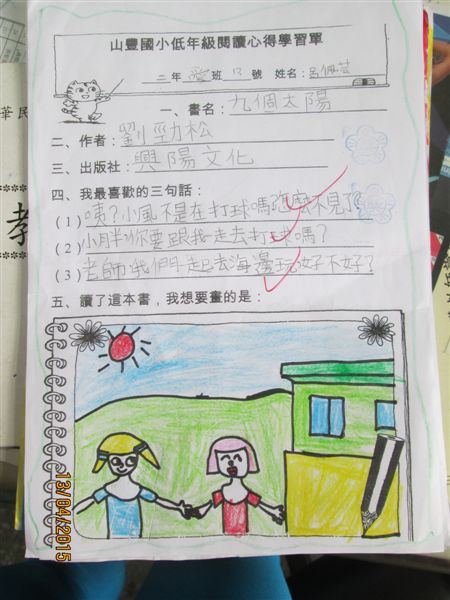 山豐國小低年級閱讀心得學習單
二年 愛 班 13 號 姓名:呂佩芸
一、書名:九個太陽
二、作者:劉勁松
三、出版社:興陽文化
四、我最喜歡的三句話:
(1)咦?小風不是在打球嗎?怎麼不見了
(2)小胖你要跟我走去打球嗎?
(3)老師我們一起去海邊玩好不好?
五、讀了這本書,我想要畫的是:
13/04/2015
華民
教